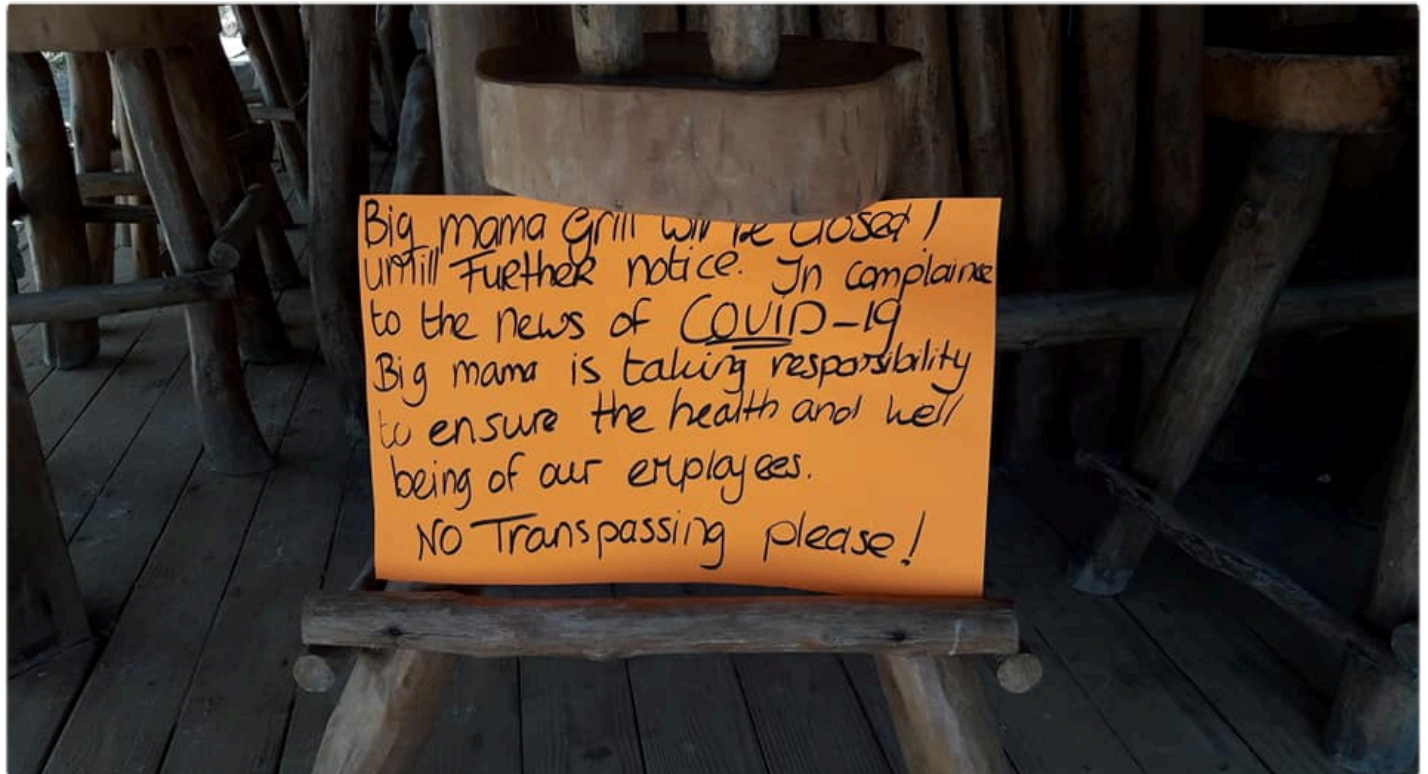 Big mama Grill will be closed!
untill Further notice. In complaince
to the news of COVID-19
Big mama is taking responsibility
to ensure the health and well
being of our employees.
NO Transpassing please!